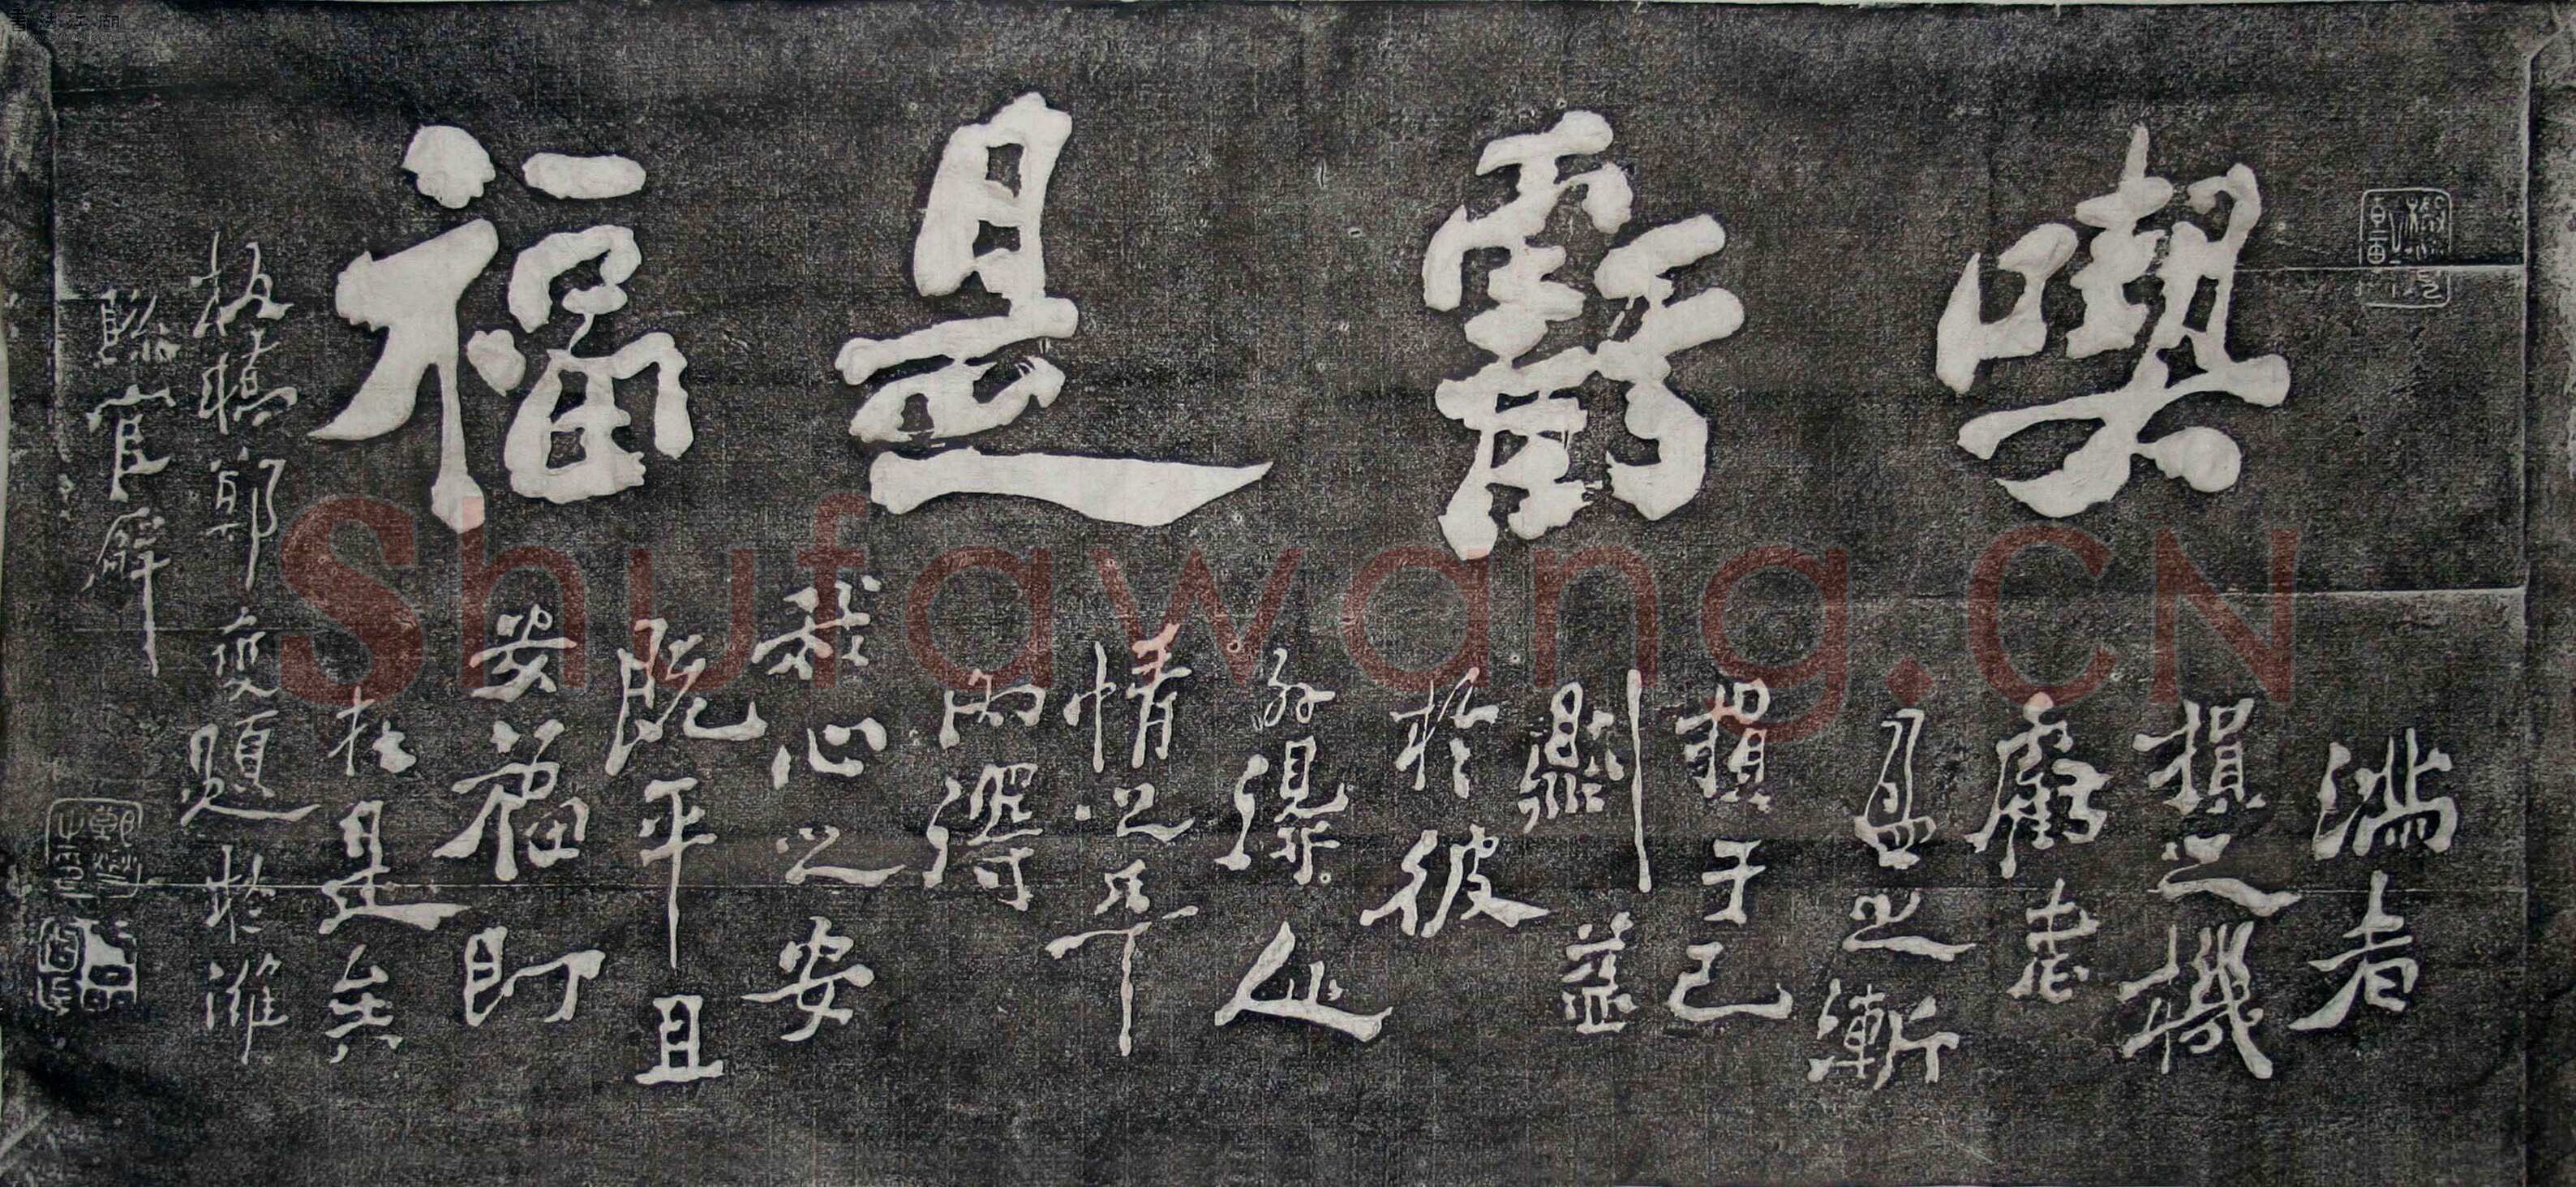 書法江湖
喫虧是福
滿者
損之機
虧者
盈之漸
損于己
則益
於彼
外得人
情之平
內得
我心之安
既平且
安福即
在是矣
板橋鄭燮題於濰
縣官廨
Shufawang.CN